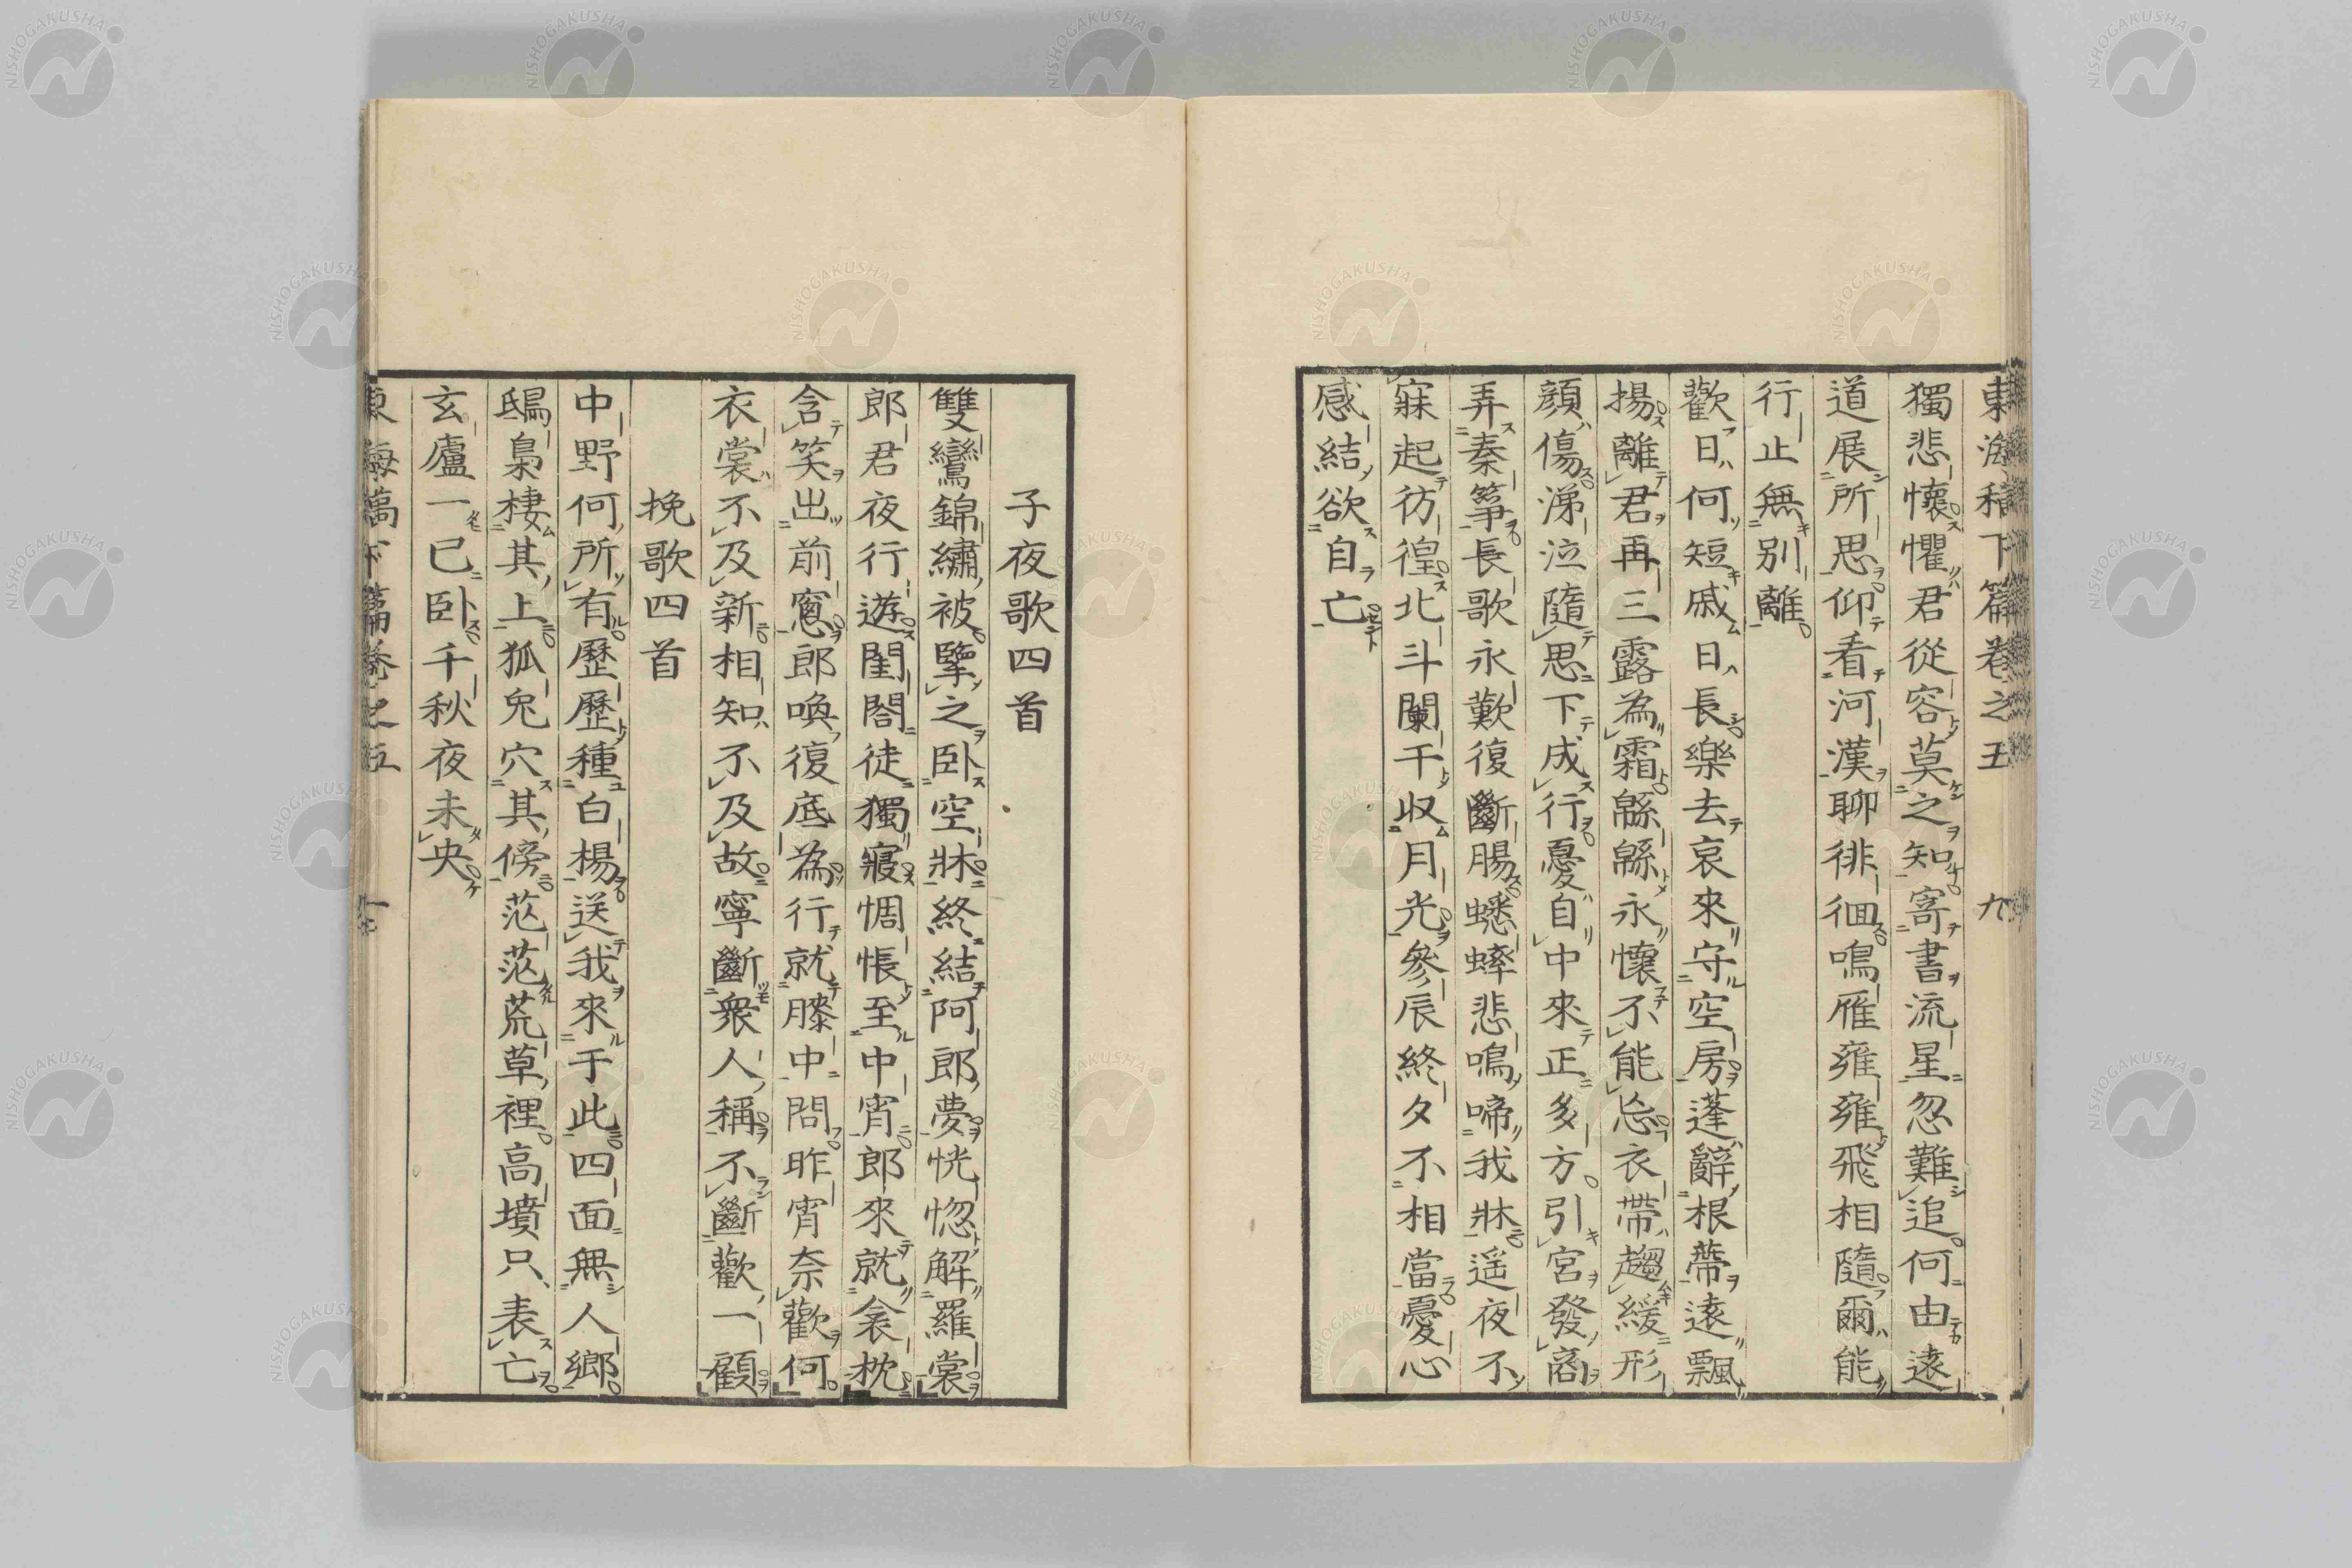 東海稿下篇卷之五 九
獨悲懷懼君從容莫之知寄書流星忽難追何由遠
道展所思仰看河漢聊徘徊鳴雁雍雍飛相隨爾能
行止無別離
歡日何短戚日長樂去哀來守空房蓬辭根蔕遠飄
揚離君再三露為霜緜緜永懷不能忘衣帶趨緩形
顏傷涕泣隨思下成行憂自中來正多方引宮發商
弄秦箏長歌永歎復斷腸蟋蟀悲鳴啼我牀遥夜不
寐起彷徨北斗闌干収月光參辰終夕不相當憂心
感結欲自亡
子夜歌四首
雙鸞錦繡被擘之卧空牀終結阿郎夢恍惚解羅裳
郎君夜行遊閨閤徒獨寢惆悵至中宵郎來就衾枕
含笑出前窻郎喚復底為行就膝中問昨宵奈歡何
衣裳不及新相知不及故寧斷衆人稱不斷歡一顧
挽歌四首
中野何所有歷歷種白楊送我來于此四面無人鄉
鴟梟棲其上狐兔穴其傍茫茫荒草裡高墳只表亡
玄廬一已卧千秋夜未央
東海稿下篇卷之五